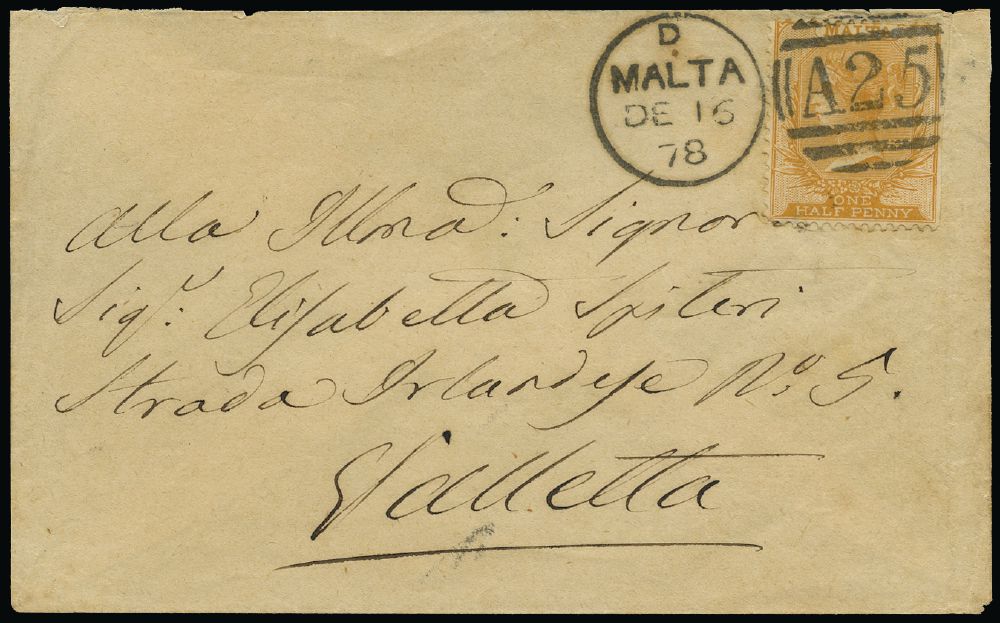 D
MALTA
DE 16
78
MALTA
A25
ONE
HALF PENNY
Alla Illma: Signor
Sigra: Elisabetta Spiteri
Strada Irlandese No 5.
Valletta